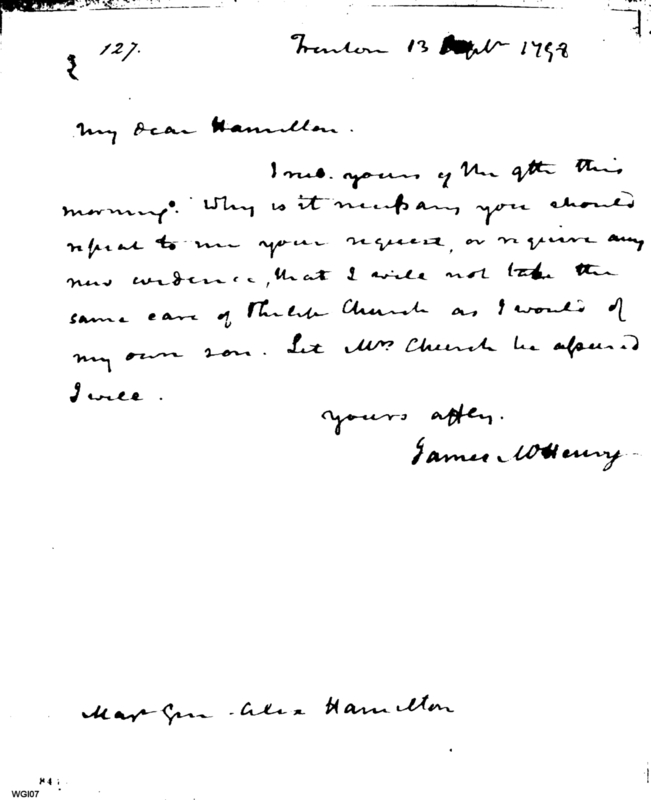 127.
Trenton 13 Sepbr 1798
My dear Hamilton.
I recd. yours of the 9th this
morning. Why is it necessary you should
repeat to me your request, or require any
new evidence, that I will not take the
same care of Philip Church as I would of
my own son. Let Mrs Church be assured
I will.
yours affly.
James McHenry
Majr Gen Alex Hamilton
WGI07